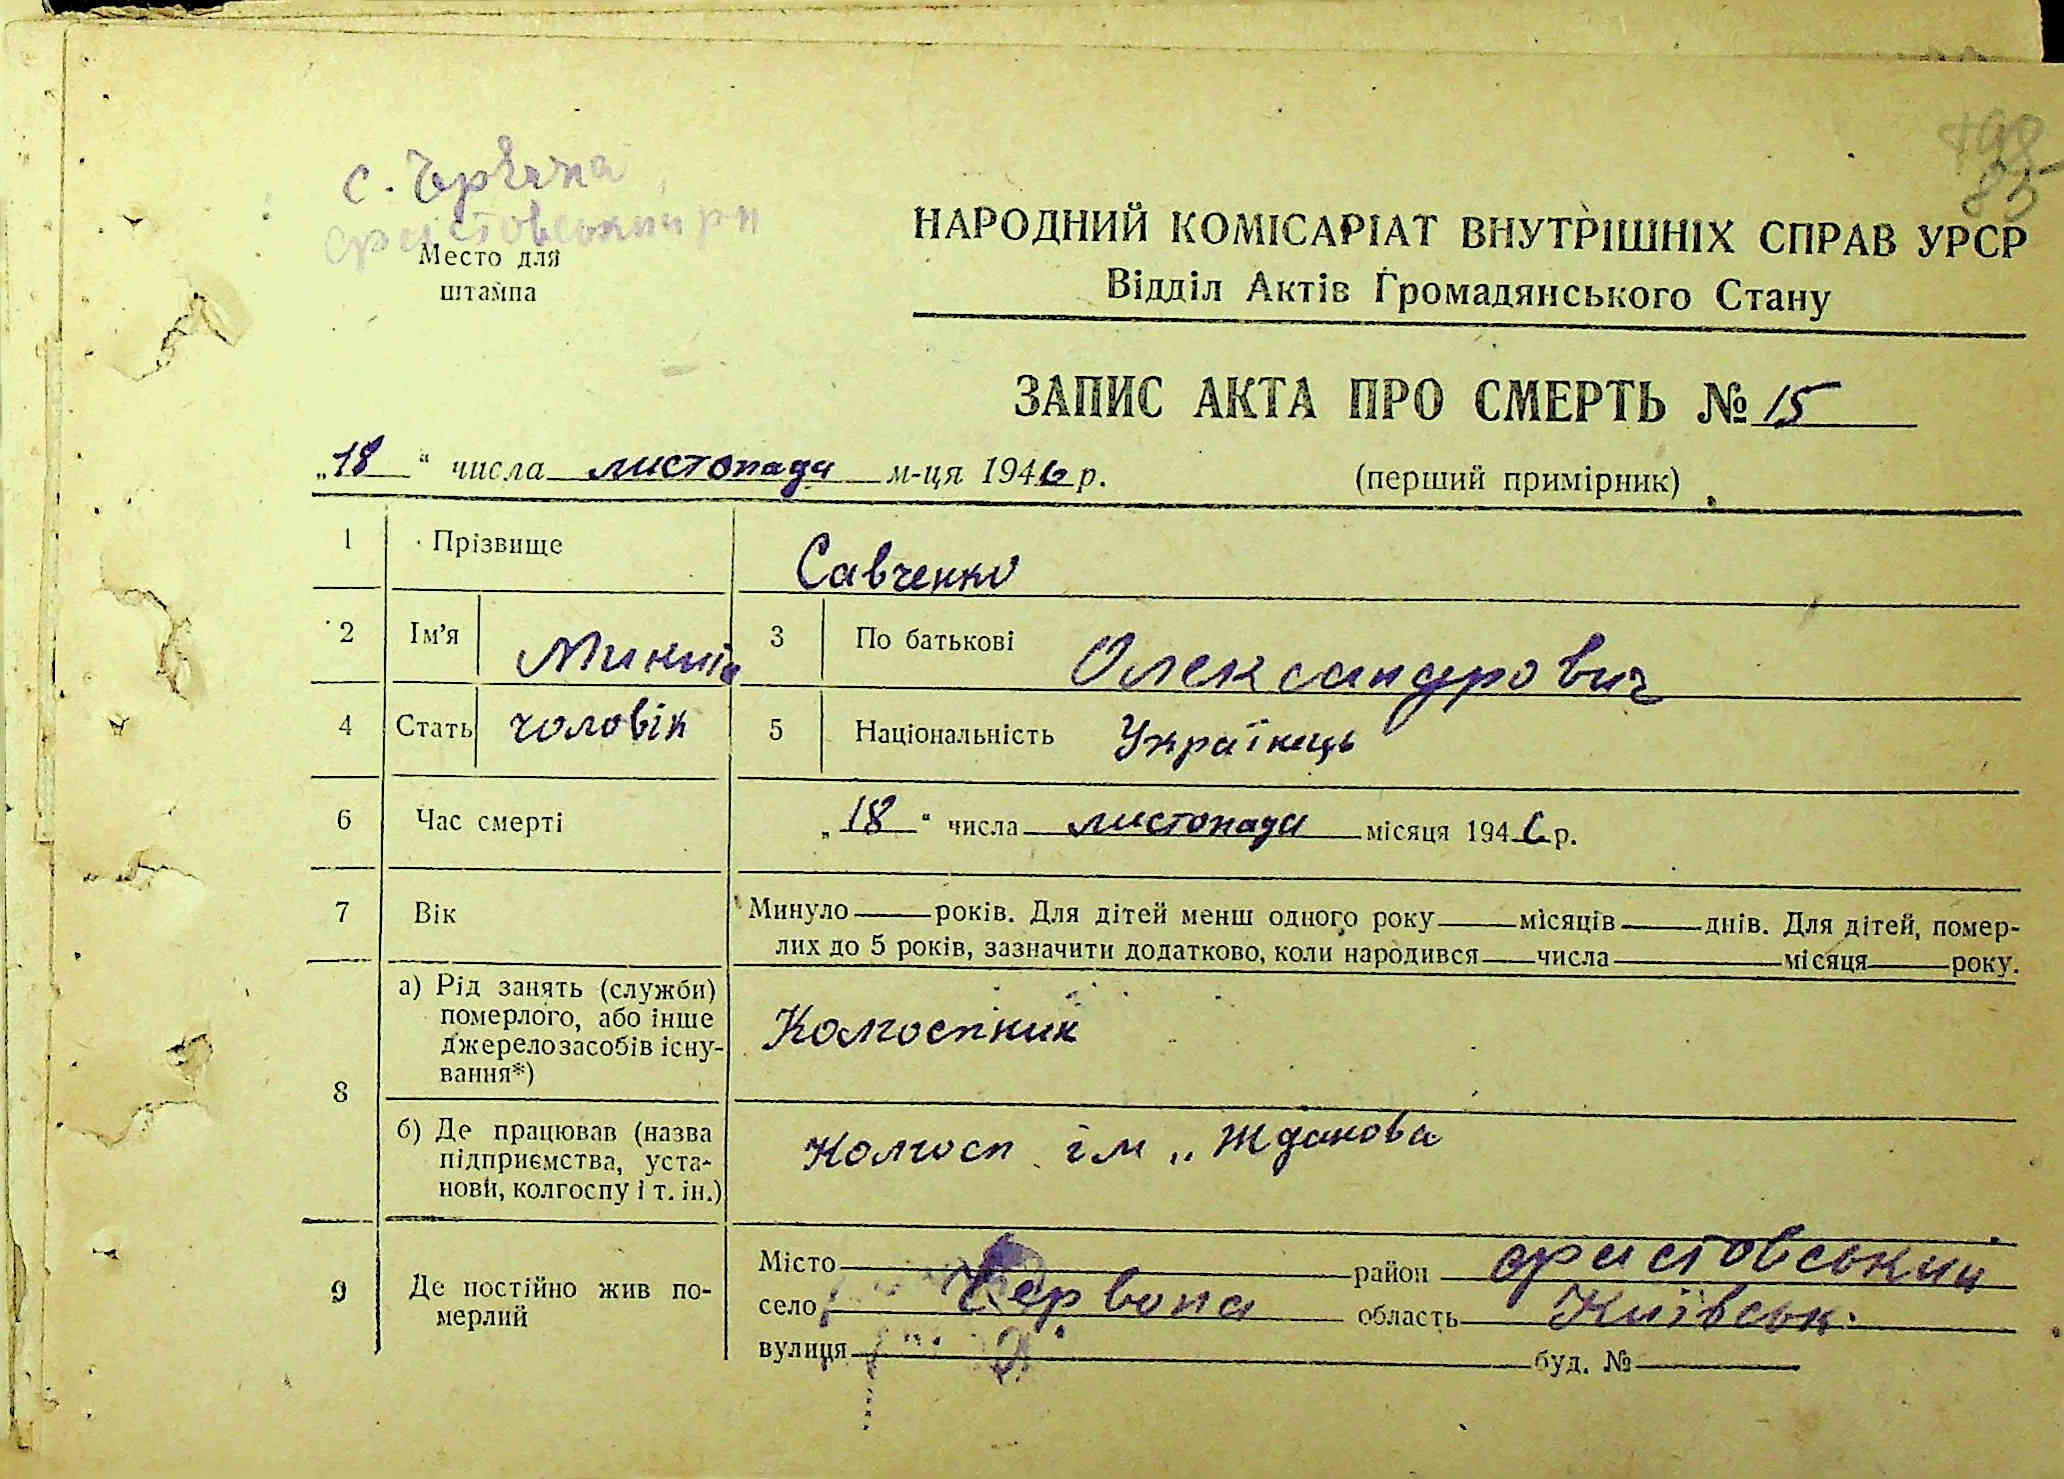 с. Червона
фристовський р-н
Место для
штампа
НАРОДНИЙ КОМІСАРІАТ ВНУТРІШНІХ СПРАВ УРСР
Відділ Актів Громадянського Стану
ЗАПИС АКТА ПРО СМЕРТЬ № 15
„18“ числа листопада м-ця 1946 р. (перший примірник)
1 Прізвище Савченко
2 Ім'я 3 По батькові Олександрович
4 Стать чоловік 5 Національність Українець
6 Час смерті „18“ числа листопада місяця 1946 р.
7 Вік Минуло років. Для дітей менш одного року місяців днів. Для дітей, помер-
лих до 5 років, зазначити додатково, коли народився числа місяця року.
8 а) Рід занять (служби)
померлого, або інше
джерело засобів існу-
вання*)
Колгоспник
б) Де працював (назва
підприємства, уста-
нови, колгоспу і т. ін.)
Колгосп ім „Жданова
9 Де постійно жив по-
мерлий
Місто район фристовський
село Червона область Київськ.
вулиця буд. №